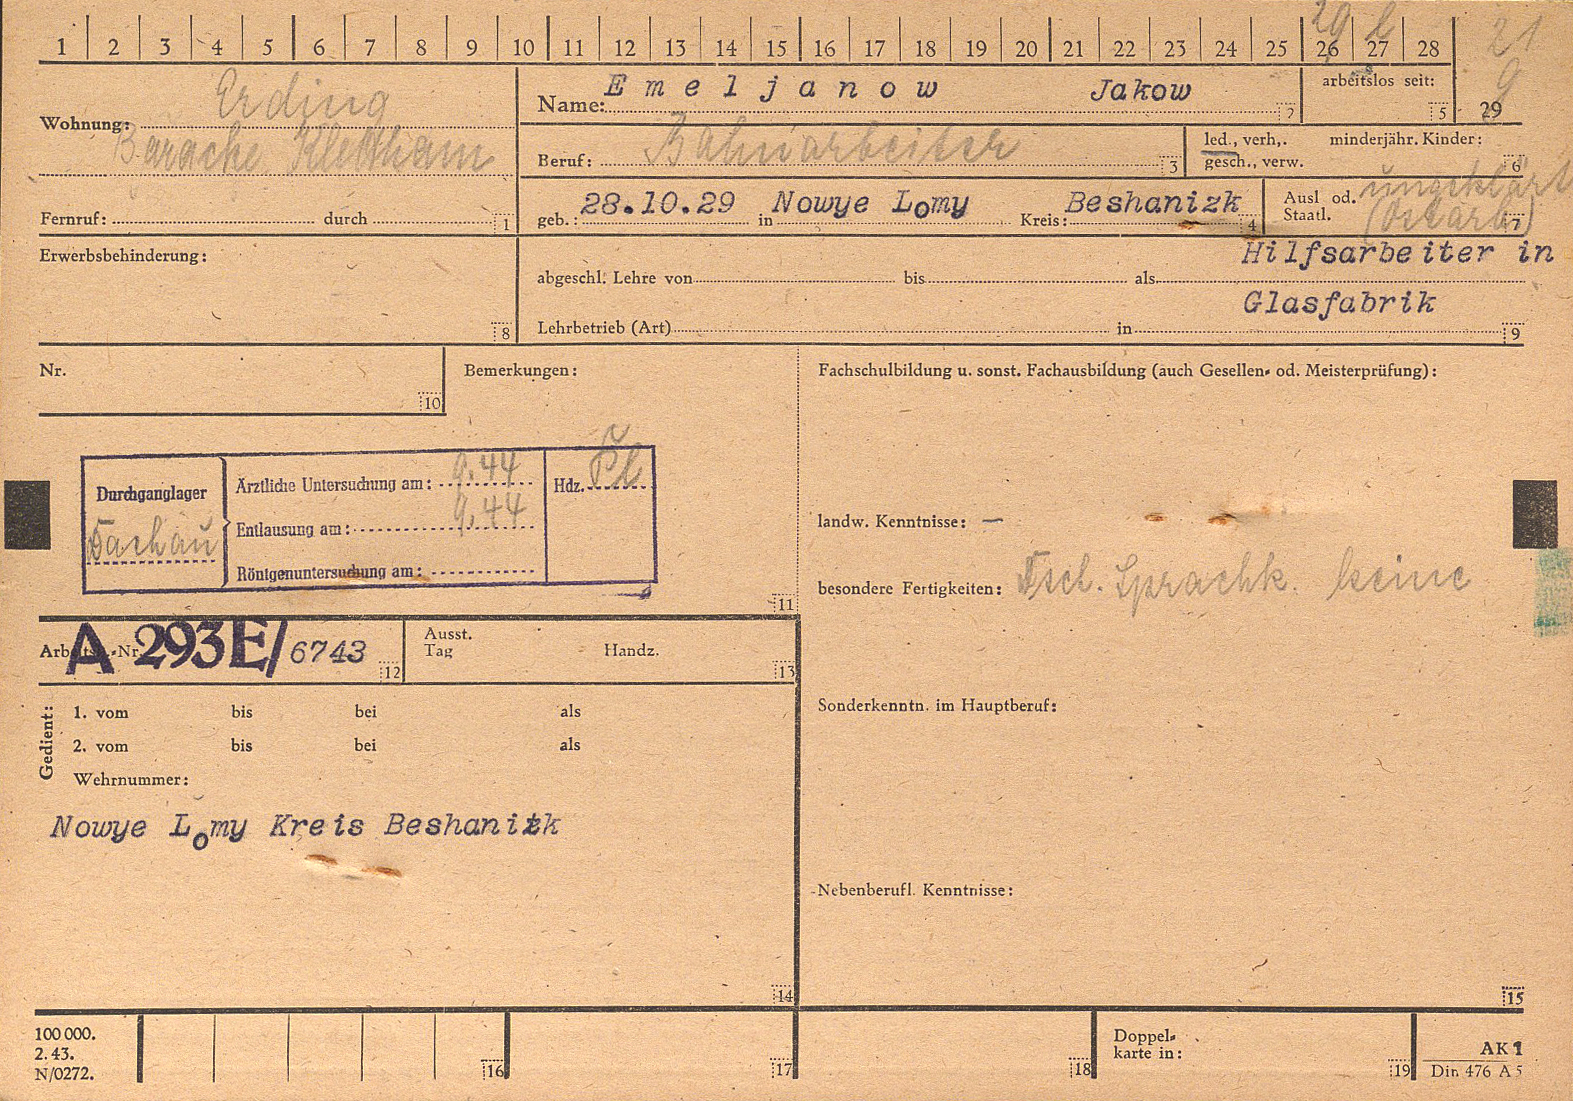 1 2 3 4 5 6 7 8 9 10 11 12 13 14 15 16 17 18 19 20 21 22 23 24 25 26 27 28 21
29 9
Wohnung: Erding
Baracke Klettham
Fernruf: durch 1
Name: Emeljanow Jakow 2
arbeitslos seit: 5
Beruf: Bahnarbeiter 3
led., verh,. minderjähr. Kinder:
gesch., verw. 6
geb.: 28.10.29 in Nowye Lomy Kreis: Beshanizk 4
Ausl od. Staatl. ungeklärt
(Ostarb) 7
Erwerbsbehinderung: 8
abgeschl. Lehre von bis als Hilfsarbeiter in
Glasfabrik
Lehrbetrieb (Art) in 9
Nr. 10
Bemerkungen:
Durchganglager
Dachau
Ärztliche Untersuchung am: 9.44
Entlausung am: 9.44
Röntgenuntersuchung am:
Hdz.
11
Fachschulbildung u. sonst. Fachausbildung (auch Gesellen- od. Meisterprüfung):
landw. Kenntnisse: —
besondere Fertigkeiten: Dsch. Sprachk. keine
Arbeitsb.-Nr. A 293E/6743 12
Ausst.
Tag Handz. 13
Gedient:
1. vom bis bei als
2. vom bis bei als
Wehrnummer:
Nowye Lomy Kreis Beshanizk
14
Sonderkenntn. im Hauptberuf:
Nebenberufl. Kenntnisse:
15
100 000.
2. 43.
N/0272.
16 17 18
Doppel-
karte in: 19
AK 1
Din 476 A 5